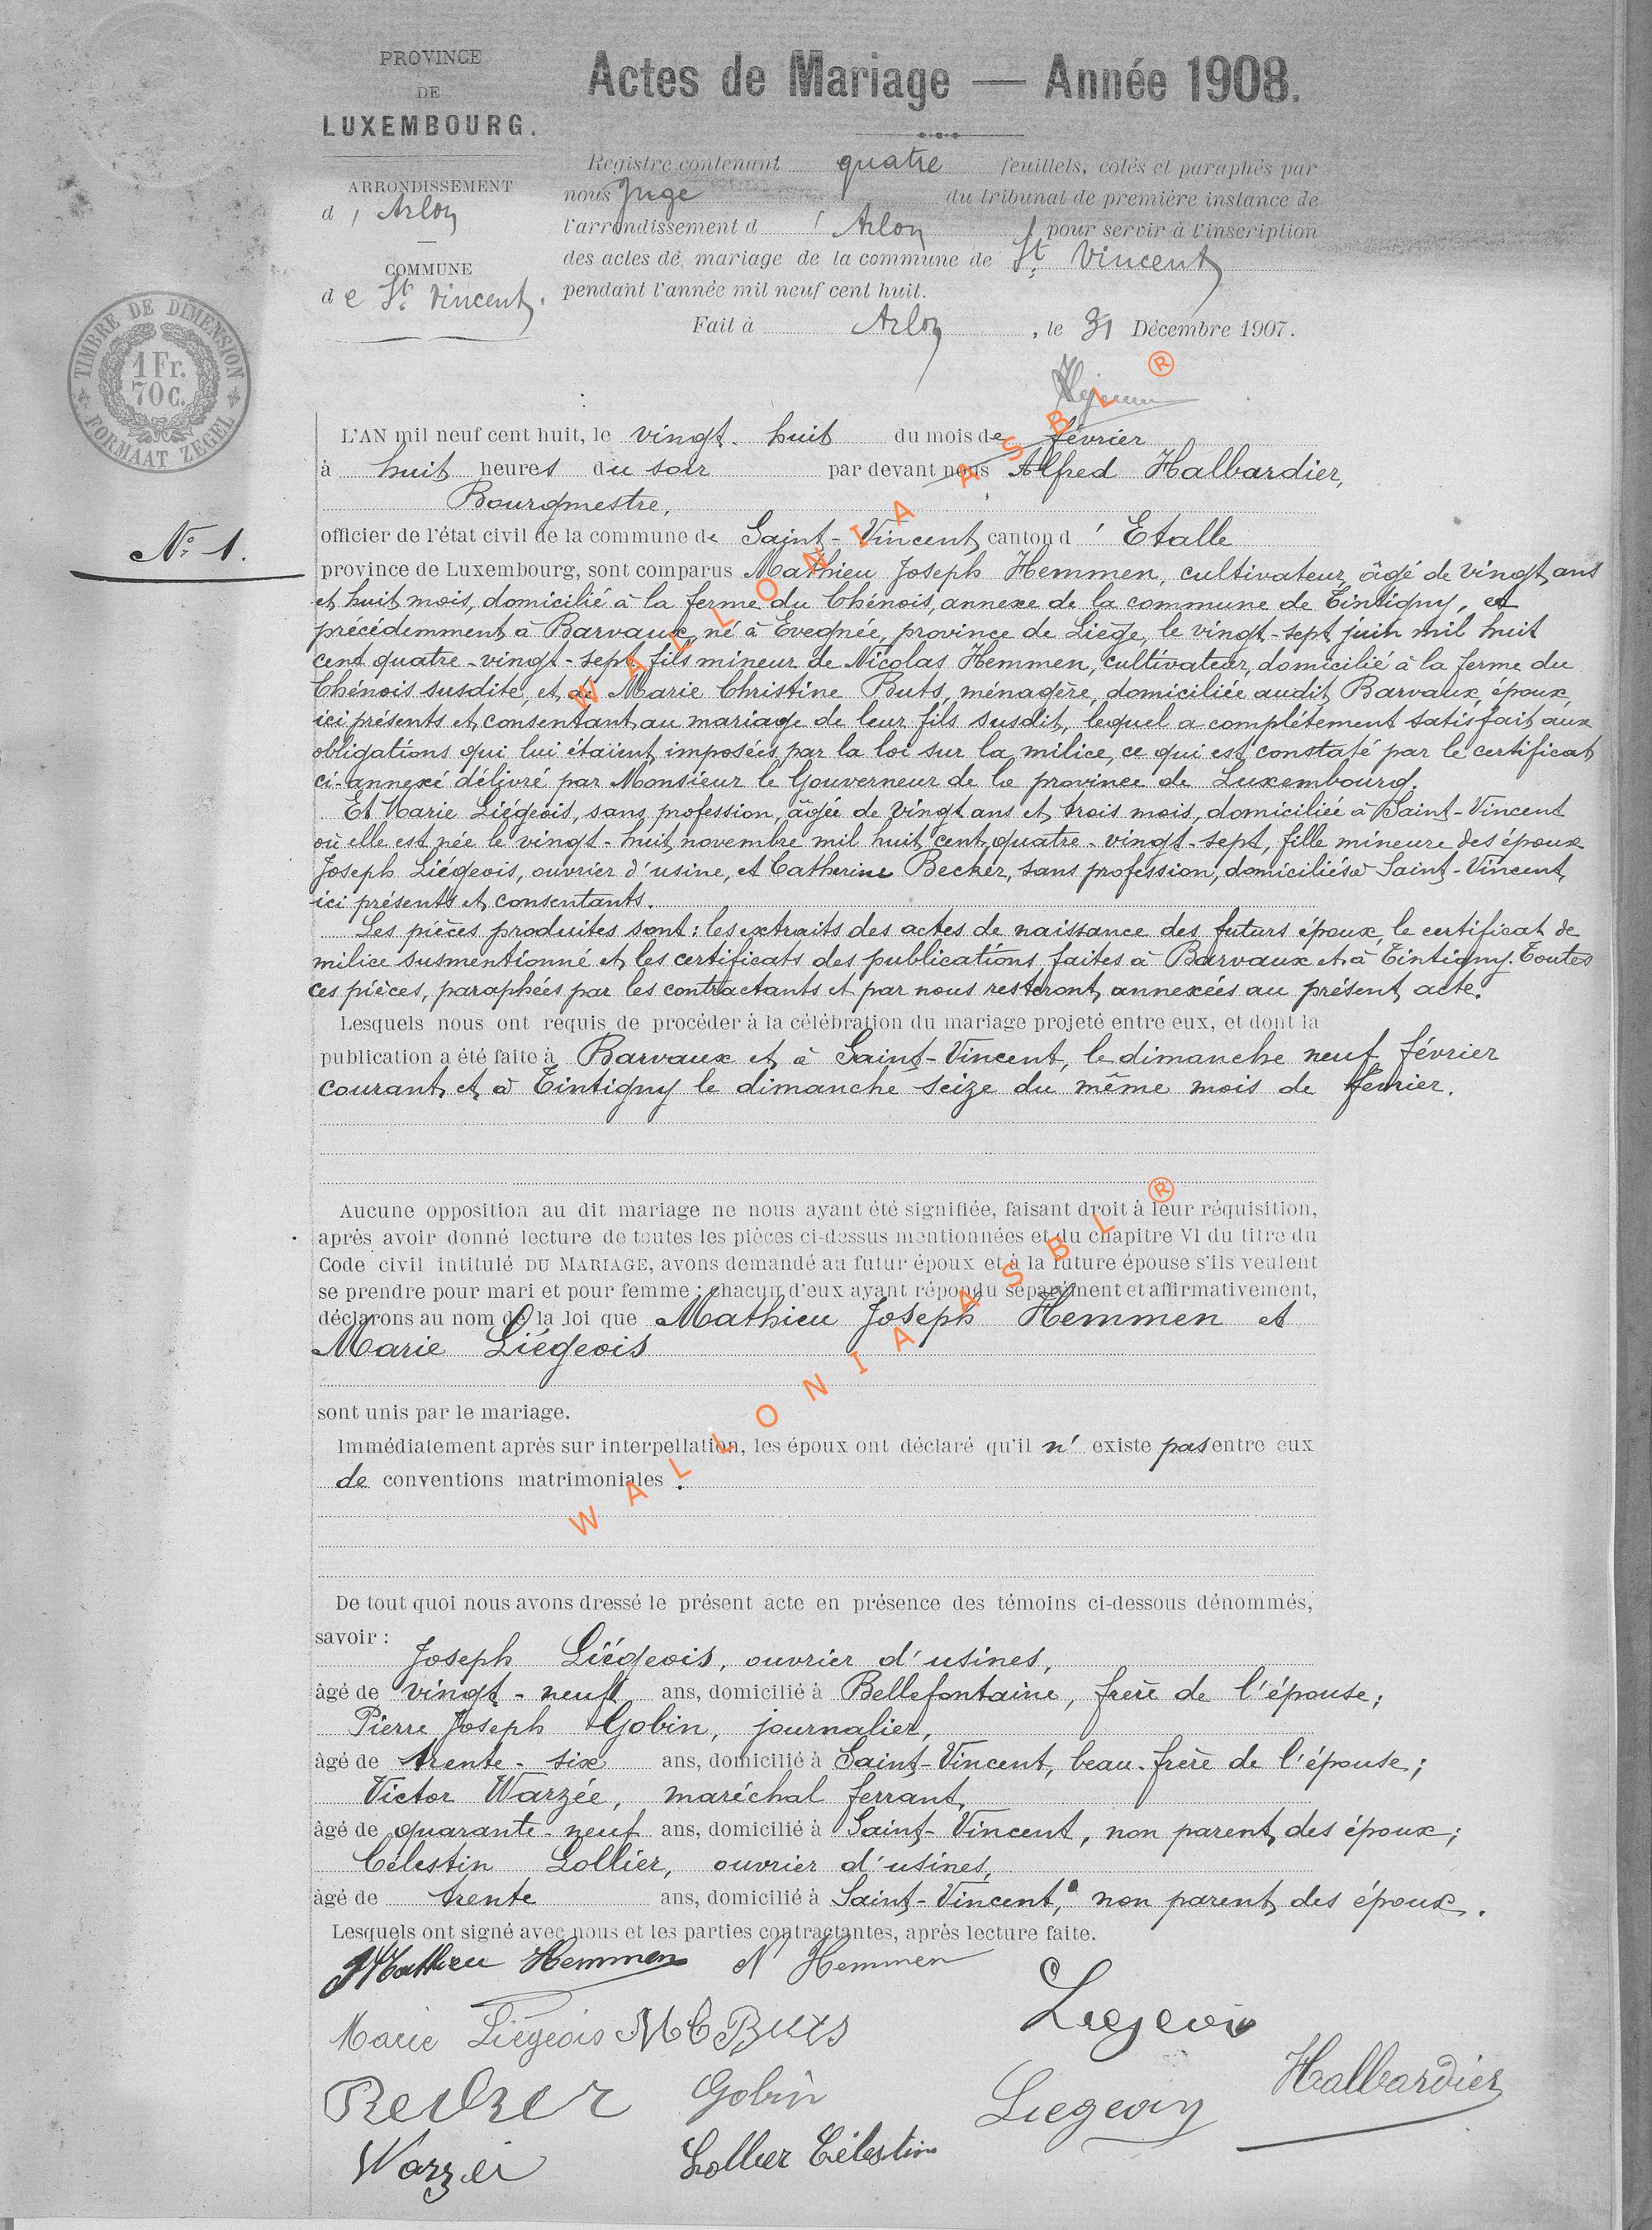 PROVINCE
DE
LUXEMBOURG.
ARRONDISSEMENT
d' Arlon
COMMUNE
de St. Vincent.
Actes de Mariage — Année 1908.
Registre contenant quatre feuillets, cotés et paraphés par
nous Juge du tribunal de première instance de
l'arrondissement d' Arlon pour servir à l'inscription
des actes de mariage de la commune de St. Vincent
pendant l'année mil neuf cent huit.
Fait à Arlon, le 31 Décembre 1907.
TIMBRE DE DIMENSION
1 Fr.
70 C.
FORMAAT ZEGEL
L'AN mil neuf cent huit, le vingt-huit du mois de février
à huit heures du soir par devant nous Alfred Halbardier,
Bourgmestre,
officier de l'état civil de la commune de Saint-Vincent canton d' Etalle
No. 1.
province de Luxembourg, sont comparus Mathieu Joseph Hemmen, cultivateur, âgé de vingt ans
et huit mois, domicilié à la ferme du Chénois, annexe de la commune de Tintigny, et
précédemment à Barvaux, né à Evegnée, province de Liège, le vingt-sept juin mil huit
cent quatre-vingt-sept, fils mineur de Nicolas Hemmen, cultivateur, domicilié à la ferme du
Chénois susdite, et de Marie Christine Buts, ménagère, domiciliée audit Barvaux, époux
ici présents et consentant au mariage de leur fils susdit, lequel a complétement satisfait aux
obligations qui lui étaient imposées par la loi sur la milice, ce qui est constaté par le certificat
ci-annexé délivré par Monsieur le Gouverneur de la province de Luxembourg.
Et Marie Liégeois, sans profession, âgée de vingt ans et trois mois, domiciliée à Saint-Vincent
où elle est née le vingt-huit novembre mil huit cent quatre-vingt-sept, fille mineure des époux
Joseph Liégeois, ouvrier d'usine, et Catherine Becker, sans profession, domiciliés à Saint-Vincent,
ici présents et consentants.
Les pièces produites sont: les extraits des actes de naissance des futurs époux, le certificat de
milice susmentionné et les certificats des publications faites à Barvaux et à Tintigny. Toutes
ces pièces, paraphées par les contractants et par nous resteront annexées au présent acte.
Lesquels nous ont requis de procéder à la célébration du mariage projeté entre eux, et dont la
publication a été faite à Barvaux et à Saint-Vincent, le dimanche neuf février
courant et à Tintigny le dimanche seize du même mois de février.
Aucune opposition au dit mariage ne nous ayant été signifiée, faisant droit à leur réquisition,
après avoir donné lecture de toutes les pièces ci-dessus mentionnées et du chapitre VI du titre du
Code civil intitulé DU MARIAGE, avons demandé au futur époux et à la future épouse s'ils veulent
se prendre pour mari et pour femme ; chacun d'eux ayant répondu séparément et affirmativement,
déclarons au nom de la loi que Mathieu Joseph Hemmen et
Marie Liégeois
sont unis par le mariage.
Immédiatement après sur interpellation, les époux ont déclaré qu'il n'existe pas entre eux
de conventions matrimoniales.
De tout quoi nous avons dressé le présent acte en présence des témoins ci-dessous dénommés,
savoir :
Joseph Liégeois, ouvrier d'usines,
âgé de vingt-neuf ans, domicilié à Bellefontaine, frère de l'épouse;
Pierre Joseph Gobin, journalier,
âgé de trente-six ans, domicilié à Saint-Vincent, beau-frère de l'épouse;
Victor Warzée, maréchal ferrant,
âgé de quarante-neuf ans, domicilié à Saint-Vincent, non parent des époux;
Célestin Lollier, ouvrier d'usines,
âgé de trente ans, domicilié à Saint-Vincent, non parent des époux.
Lesquels ont signé avec nous et les parties contractantes, après lecture faite.
Mathieu Hemmen N Hemmen
Marie Liégeois M C Buts Liegeois
Becker Gobin Liegeois Halbardier
Warzée Lollier Célestin
WALLONIA ASBL ®
WALLONIA ASBL ®